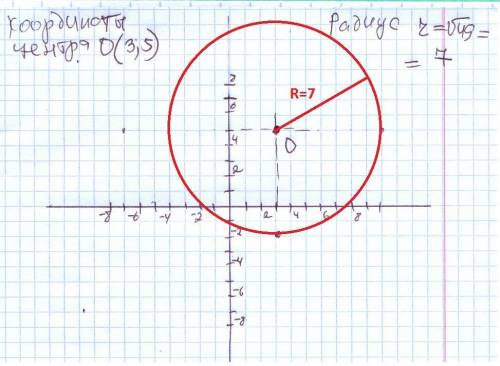 координаты
центра O(3;5)
Радиус r=√49=
= 7
R=7
O
8
6
4
2
-8 -6 -4 -2 2 4 6 8
-2
-4
-6
-8